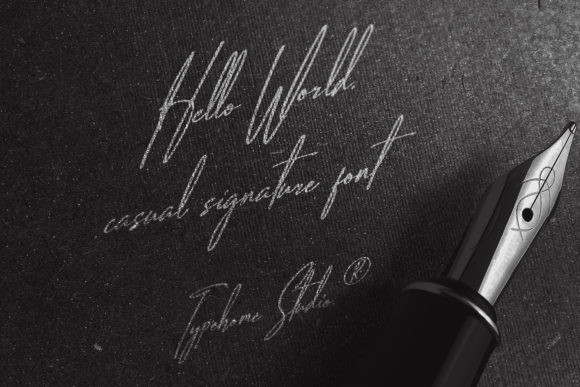 Hello World,
casual signature font
Typehome Studio ®